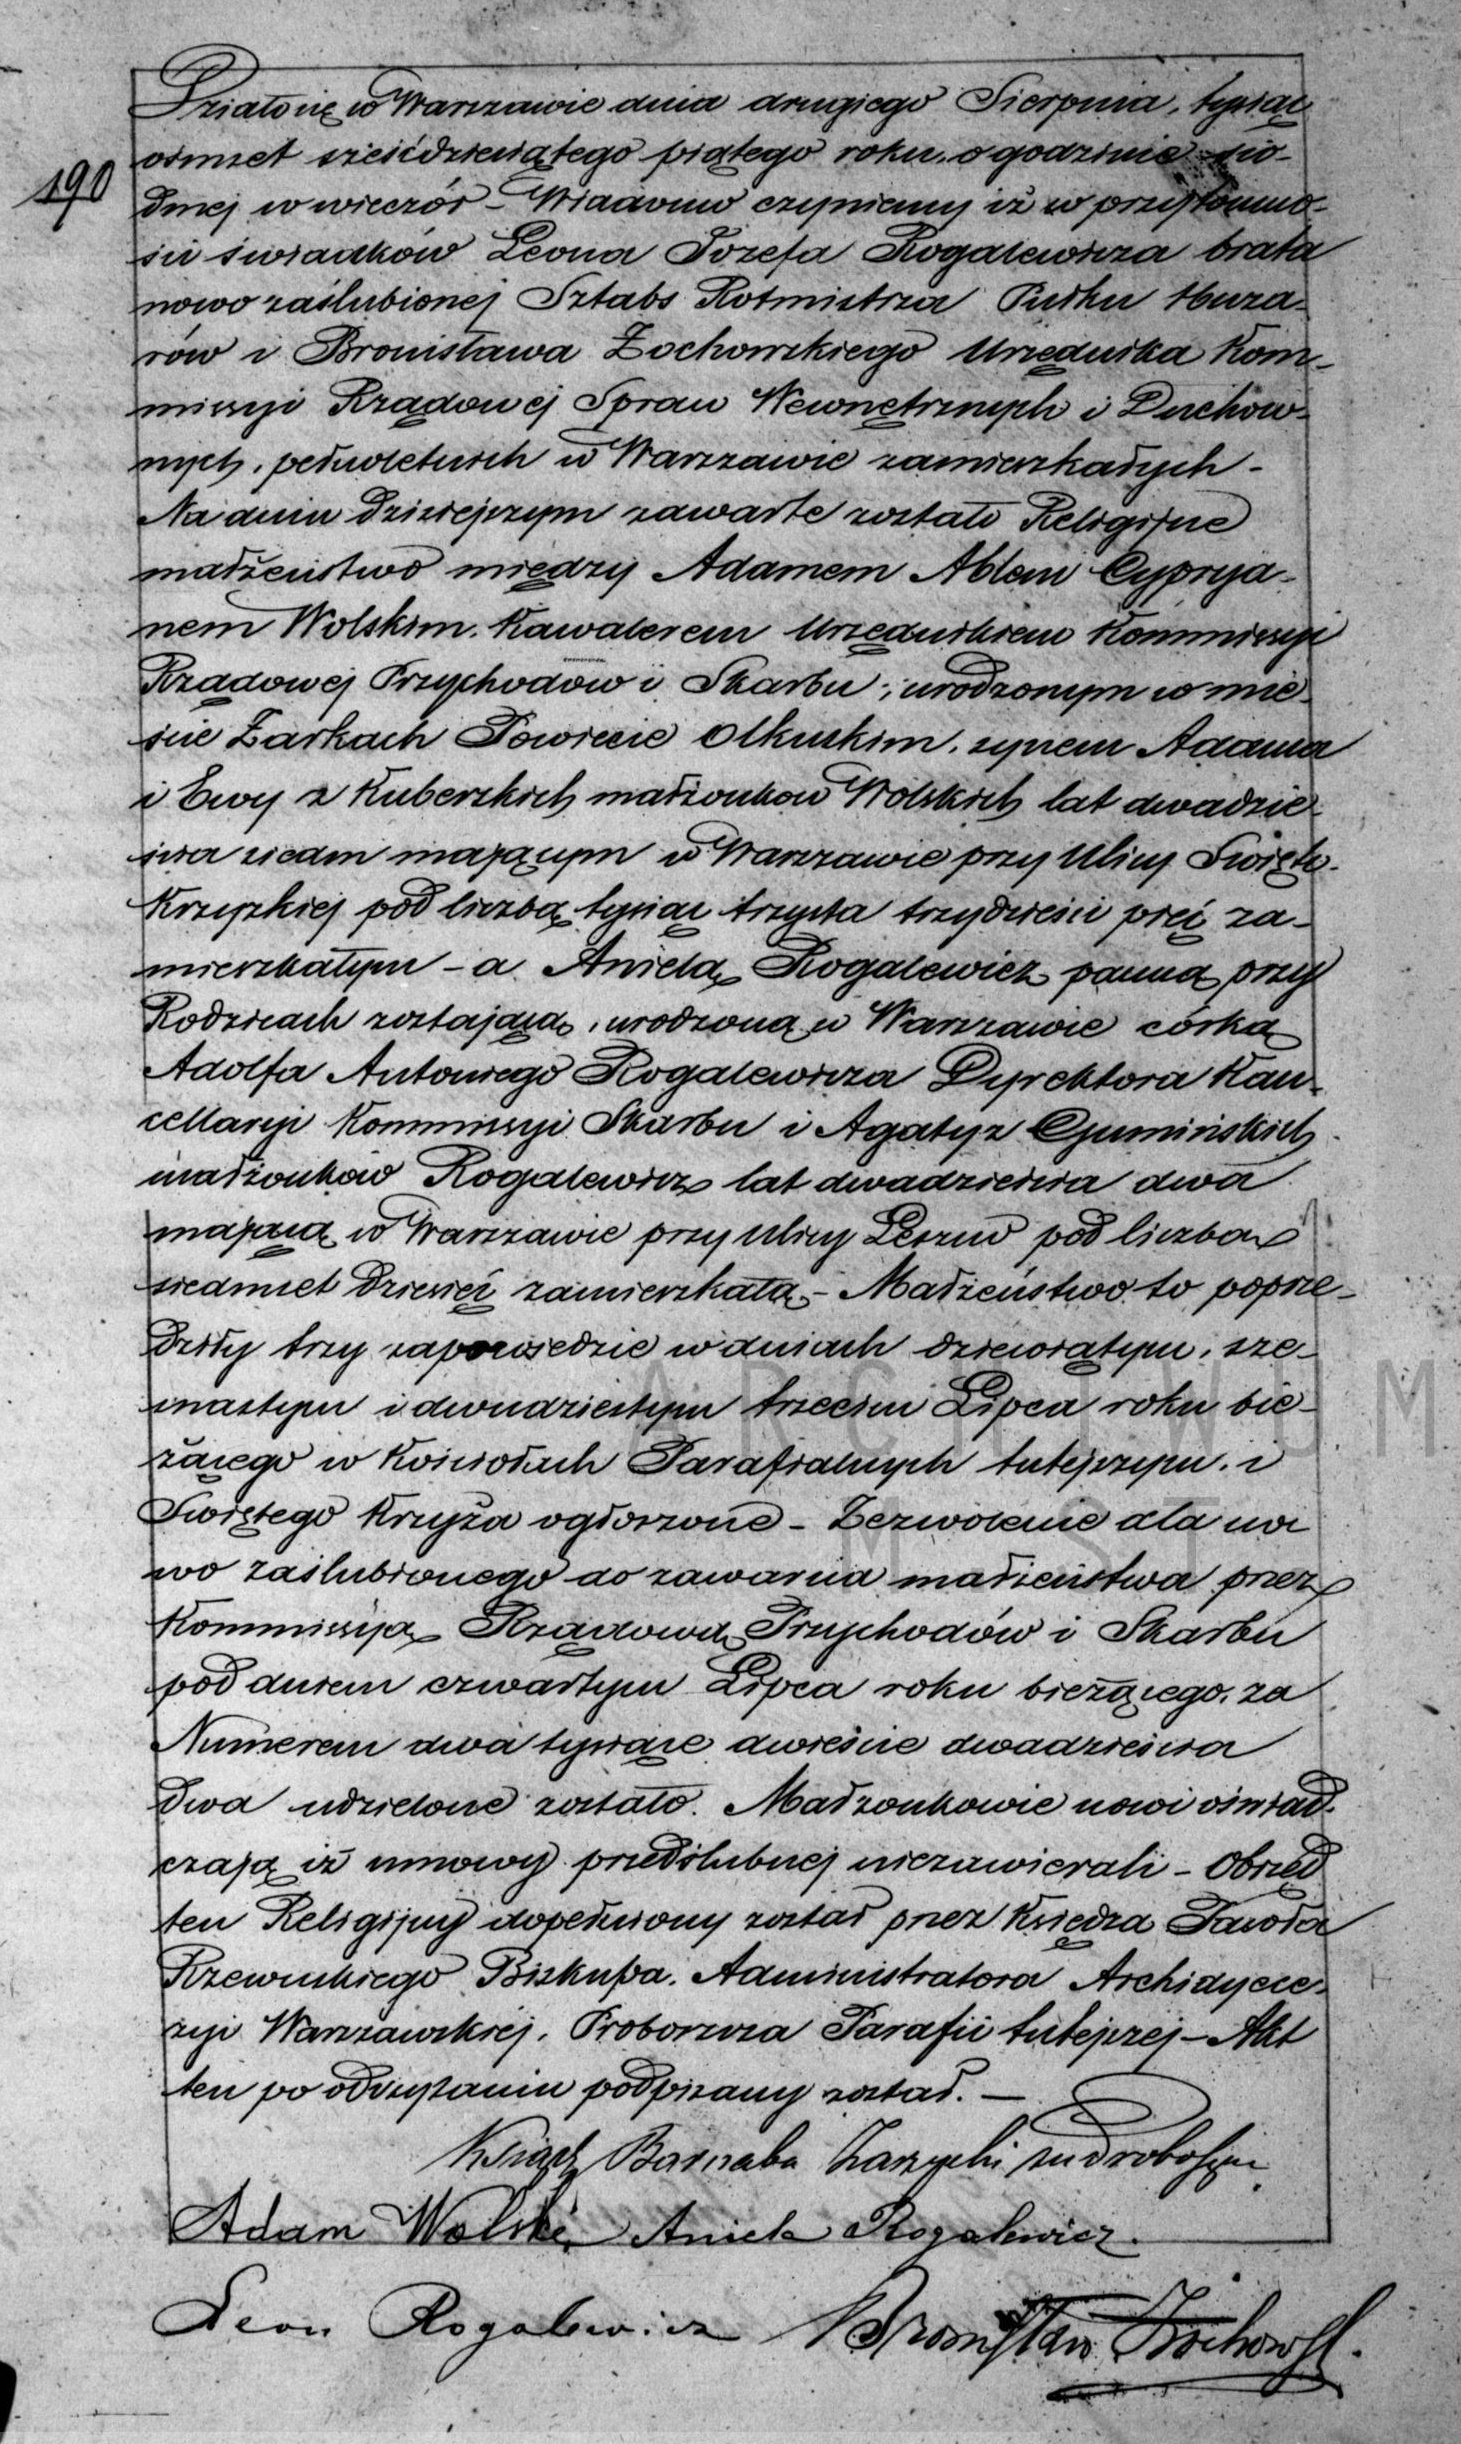 190
Działo się w Warszawie dnia drugiego Sierpnia, tysiąc
ośmset sześćdziesiątego piątego roku, o godzinie sió-
dmej w wieczór – Wiadomo czyniemy iż w przytomno-
ści świadków Leona Józefa Rogalewicza brata
nowo zaślubionej Sztabs Rotmistrza Pułku Huza-
rów i Bronisława Żochowskiego Urzędnika Kom-
missyi Rządowej Spraw Wewnętrznych i Duchow-
nych, pełnoletnich w Warszawie zamieszkałych –
Na dniu dzisiejszym zawarte zostało Religijne
małżeństwo między Adamem Ablem Cypryja-
nem Wolskim, Kawalerem Urzędnikiem Kommissyi
Rządowej Przychodów i Skarbu, urodzonym w mie-
ście Żarkach Powiecie Olkuskim, synem Adama
i Ewy z Kuberskich małżonków Wolskich lat dwadzie-
ścia siedm mającym w Warszawie przy Ulicy Święto-
Krzyzkiej pod liczbą tysiąc trzysta trzydzieści pięć za-
mieszkałym – a Anielą Rogalewicz panną przy
Rodzicach zostającą, urodzoną w Warszawie córką
Adolfa Antoniego Rogalewicza Dyrektora Kan-
cellaryi Kommissyi Skarbu i Agaty z Czumińskich
małżonków Rogalewicz lat dwadzieścia dwa
mającą w Warszawie przy Ulicy Leszno pod liczbą
siedmset dziewięć zamieszkałą – Małżeństwo to poprze-
dziły trzy zapowiedzie w dniach dziewiątym, sze-
snastym i dwudziestym trzecim Lipca roku bie-
żącego w Kościołach Parafialnych tutejszym, i
Świętego Krzyża ogłoszone – Zezwolenie dla no
wo zaślubionego do zawarcia małżeństwa przez
Kommissyą Rządową Przychodów i Skarbu
pod dniem czwartym Lipca roku bieżącego, za
Numerem dwa tysiące dwieście dwadzieścia
dwa udzielone zostało. Małżonkowie nowi oświad-
czają iż umowy przedślubnej niezawierali – Obrzęd
ten Religijny dopełniony został przez Księdza Pawła
Rzewuskiego Biskupa, Administratora Archidyece-
zyi Warszawskiej, Proboszcza Parafii tutejszej – Akt
ten po odczytaniu podpisany został. –
Ksiądz Barnaba
Adam Wolski Aniela Rogalewicz.
Leon Rogalewicz Bronisław Żochowski.
ARCHIWUM
M ST